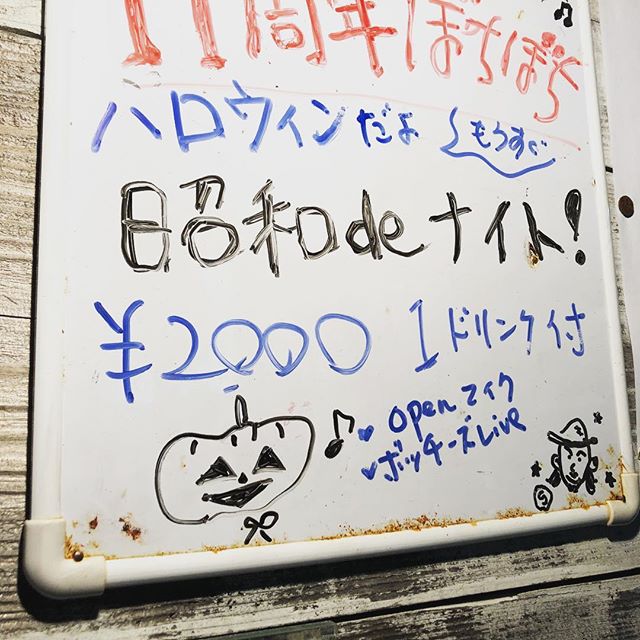 11周年ぼちぼち
ハロウィンだよ もうすぐ
昭和deナイト!
¥2000 1ドリンク付
openマイク
ボッチーズLive